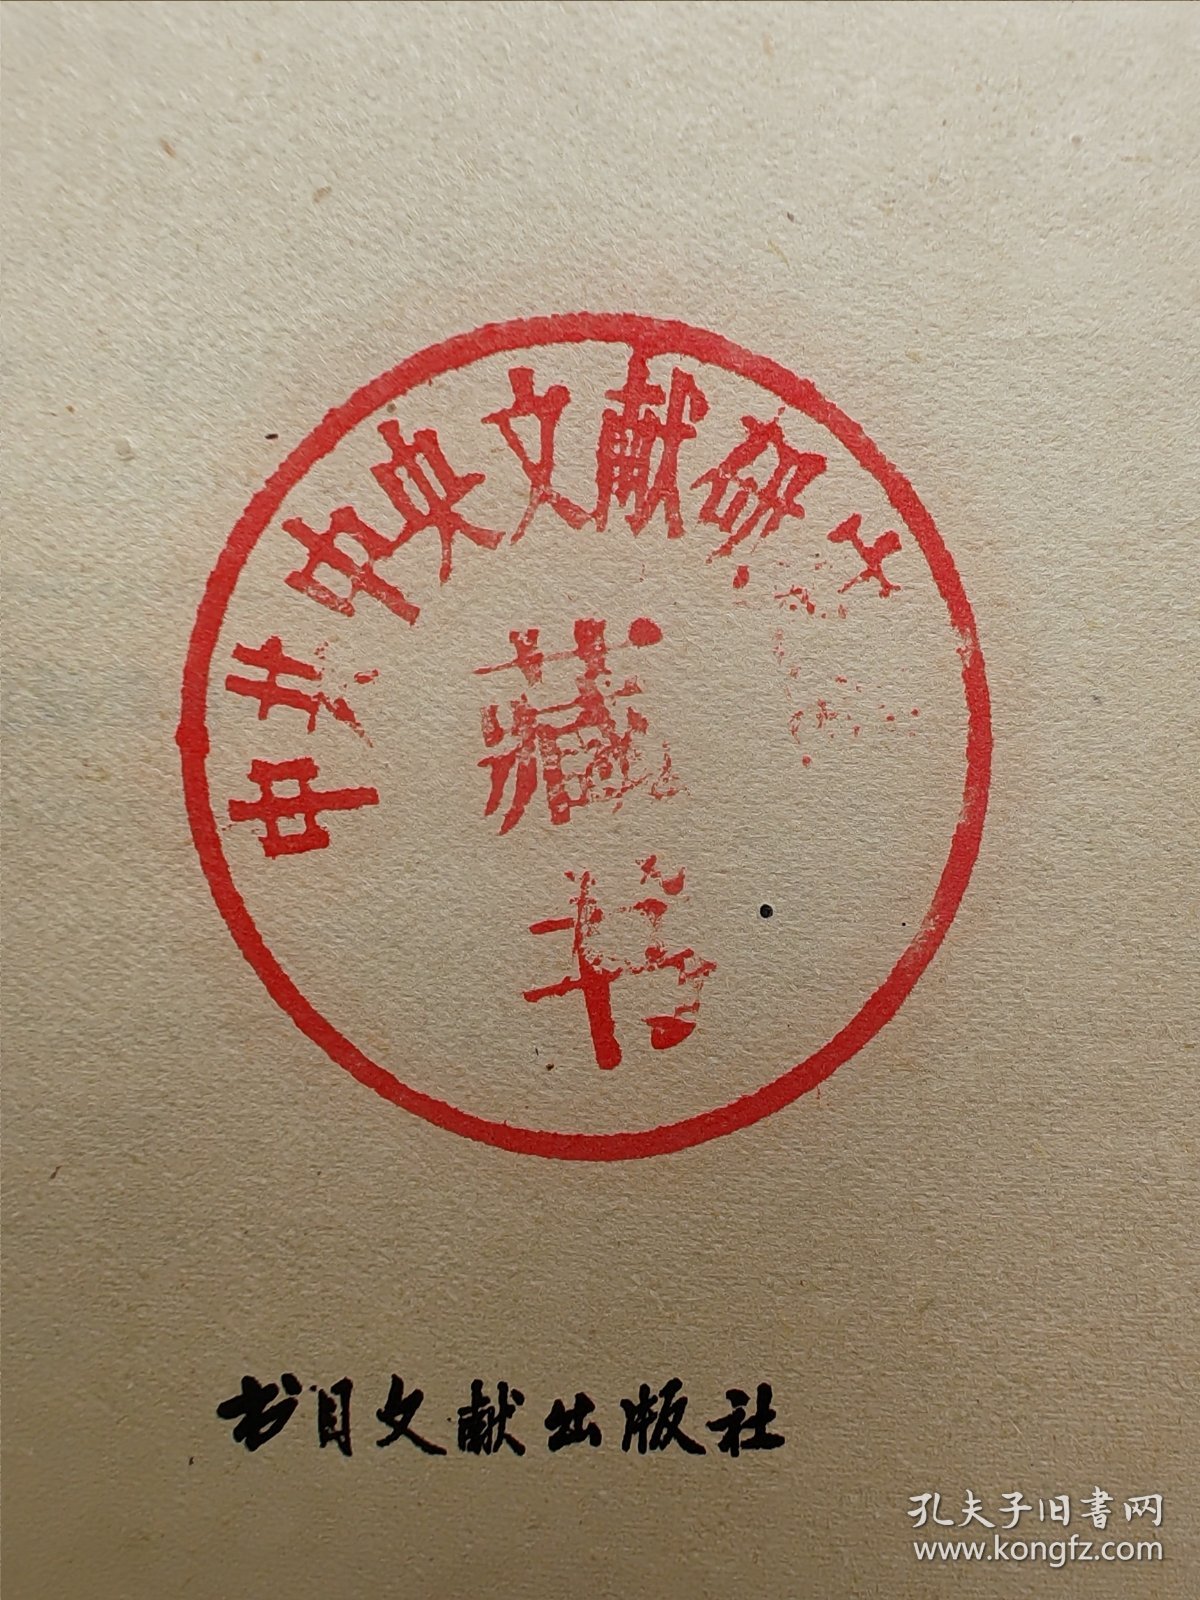 中共中央文献研
藏
书
书目文献出版社
孔夫子旧書网
www.kongfz.com